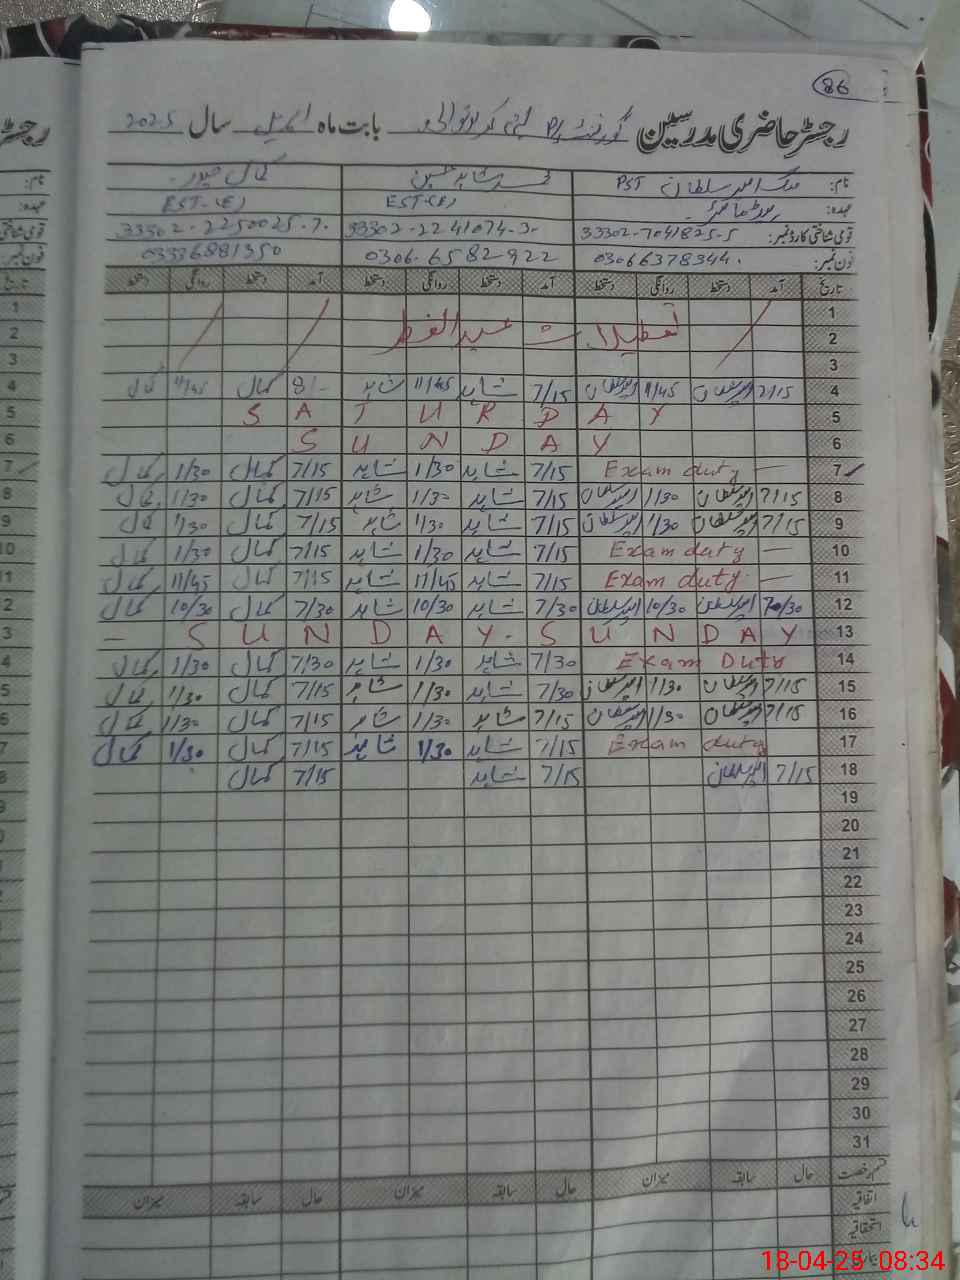 86
رجسٹر حاضری مدرسین گورنمنٹ P/S بابت ماہ اپریل سال 2025
نام: ملک امیر سلطان PST محمد شاہد حسین کمال حیدر
عہدہ: EST-(E) EST-(E)
قومی شناختی کارڈ نمبر: 33302-7041825-5 33302-2241074-3 33302-2250025-7
فون نمبر: 03066378344 0306-6582922 03336881350
تاریخ آمد دستخط روانگی دستخط آمد دستخط روانگی دستخط آمد دستخط روانگی دستخط
1
2 تعطیلات عید الفطر
3
4 7/15 امیر سلطان 11/45 امیر سلطان 7/15 شاہد 11/45 شاہد 8/- کمال 11/45 کمال
5 SATURDAY
6 SUNDAY
7 Exam duty — 7/15 شاہد 1/30 شاہد 7/15 کمال 1/30 کمال
8 7/15 امیر سلطان 1/30 امیر سلطان 7/15 شاہد 1/30 شاہد 7/15 کمال 1/30 کمال
9 7/15 امیر سلطان 1/30 امیر سلطان 7/15 شاہد 1/30 شاہد 7/15 کمال 1/30 کمال
10 Exam duty — 7/15 شاہد 1/30 شاہد 7/15 کمال 1/30 کمال
11 Exam duty — 7/15 شاہد 11/45 شاہد 7/15 کمال 11/45 کمال
12 امیر سلطان 10/30 امیر سلطان 7/30 شاہد 10/30 شاہد 7/30 کمال 10/30 کمال
13 — SUNDAY. SUNDAY
14 Exam Duty 7/30 شاہد 1/30 شاہد 7/30 کمال 1/30 کمال
15 7/15 امیر سلطان 1/30 امیر سلطان 7/30 شاہد 1/30 شاہد 7/15 کمال 1/30 کمال
16 7/15 امیر سلطان 1/30 امیر سلطان 7/15 شاہد 1/30 شاہد 7/15 کمال 1/30 کمال
17 Exam duty 7/15 شاہد 1/30 شاہد 7/15 کمال 1/30 کمال
18 7/15 امیر سلطان 7/15 شاہد 7/15 کمال
19
20
21
22
23
24
25
26
27
28
29
30
31
قسم رخصت حال سابقہ میزان حال سابقہ میزان حال سابقہ میزان
اتفاقیہ
استحقاقیہ
18-04-25 08:34